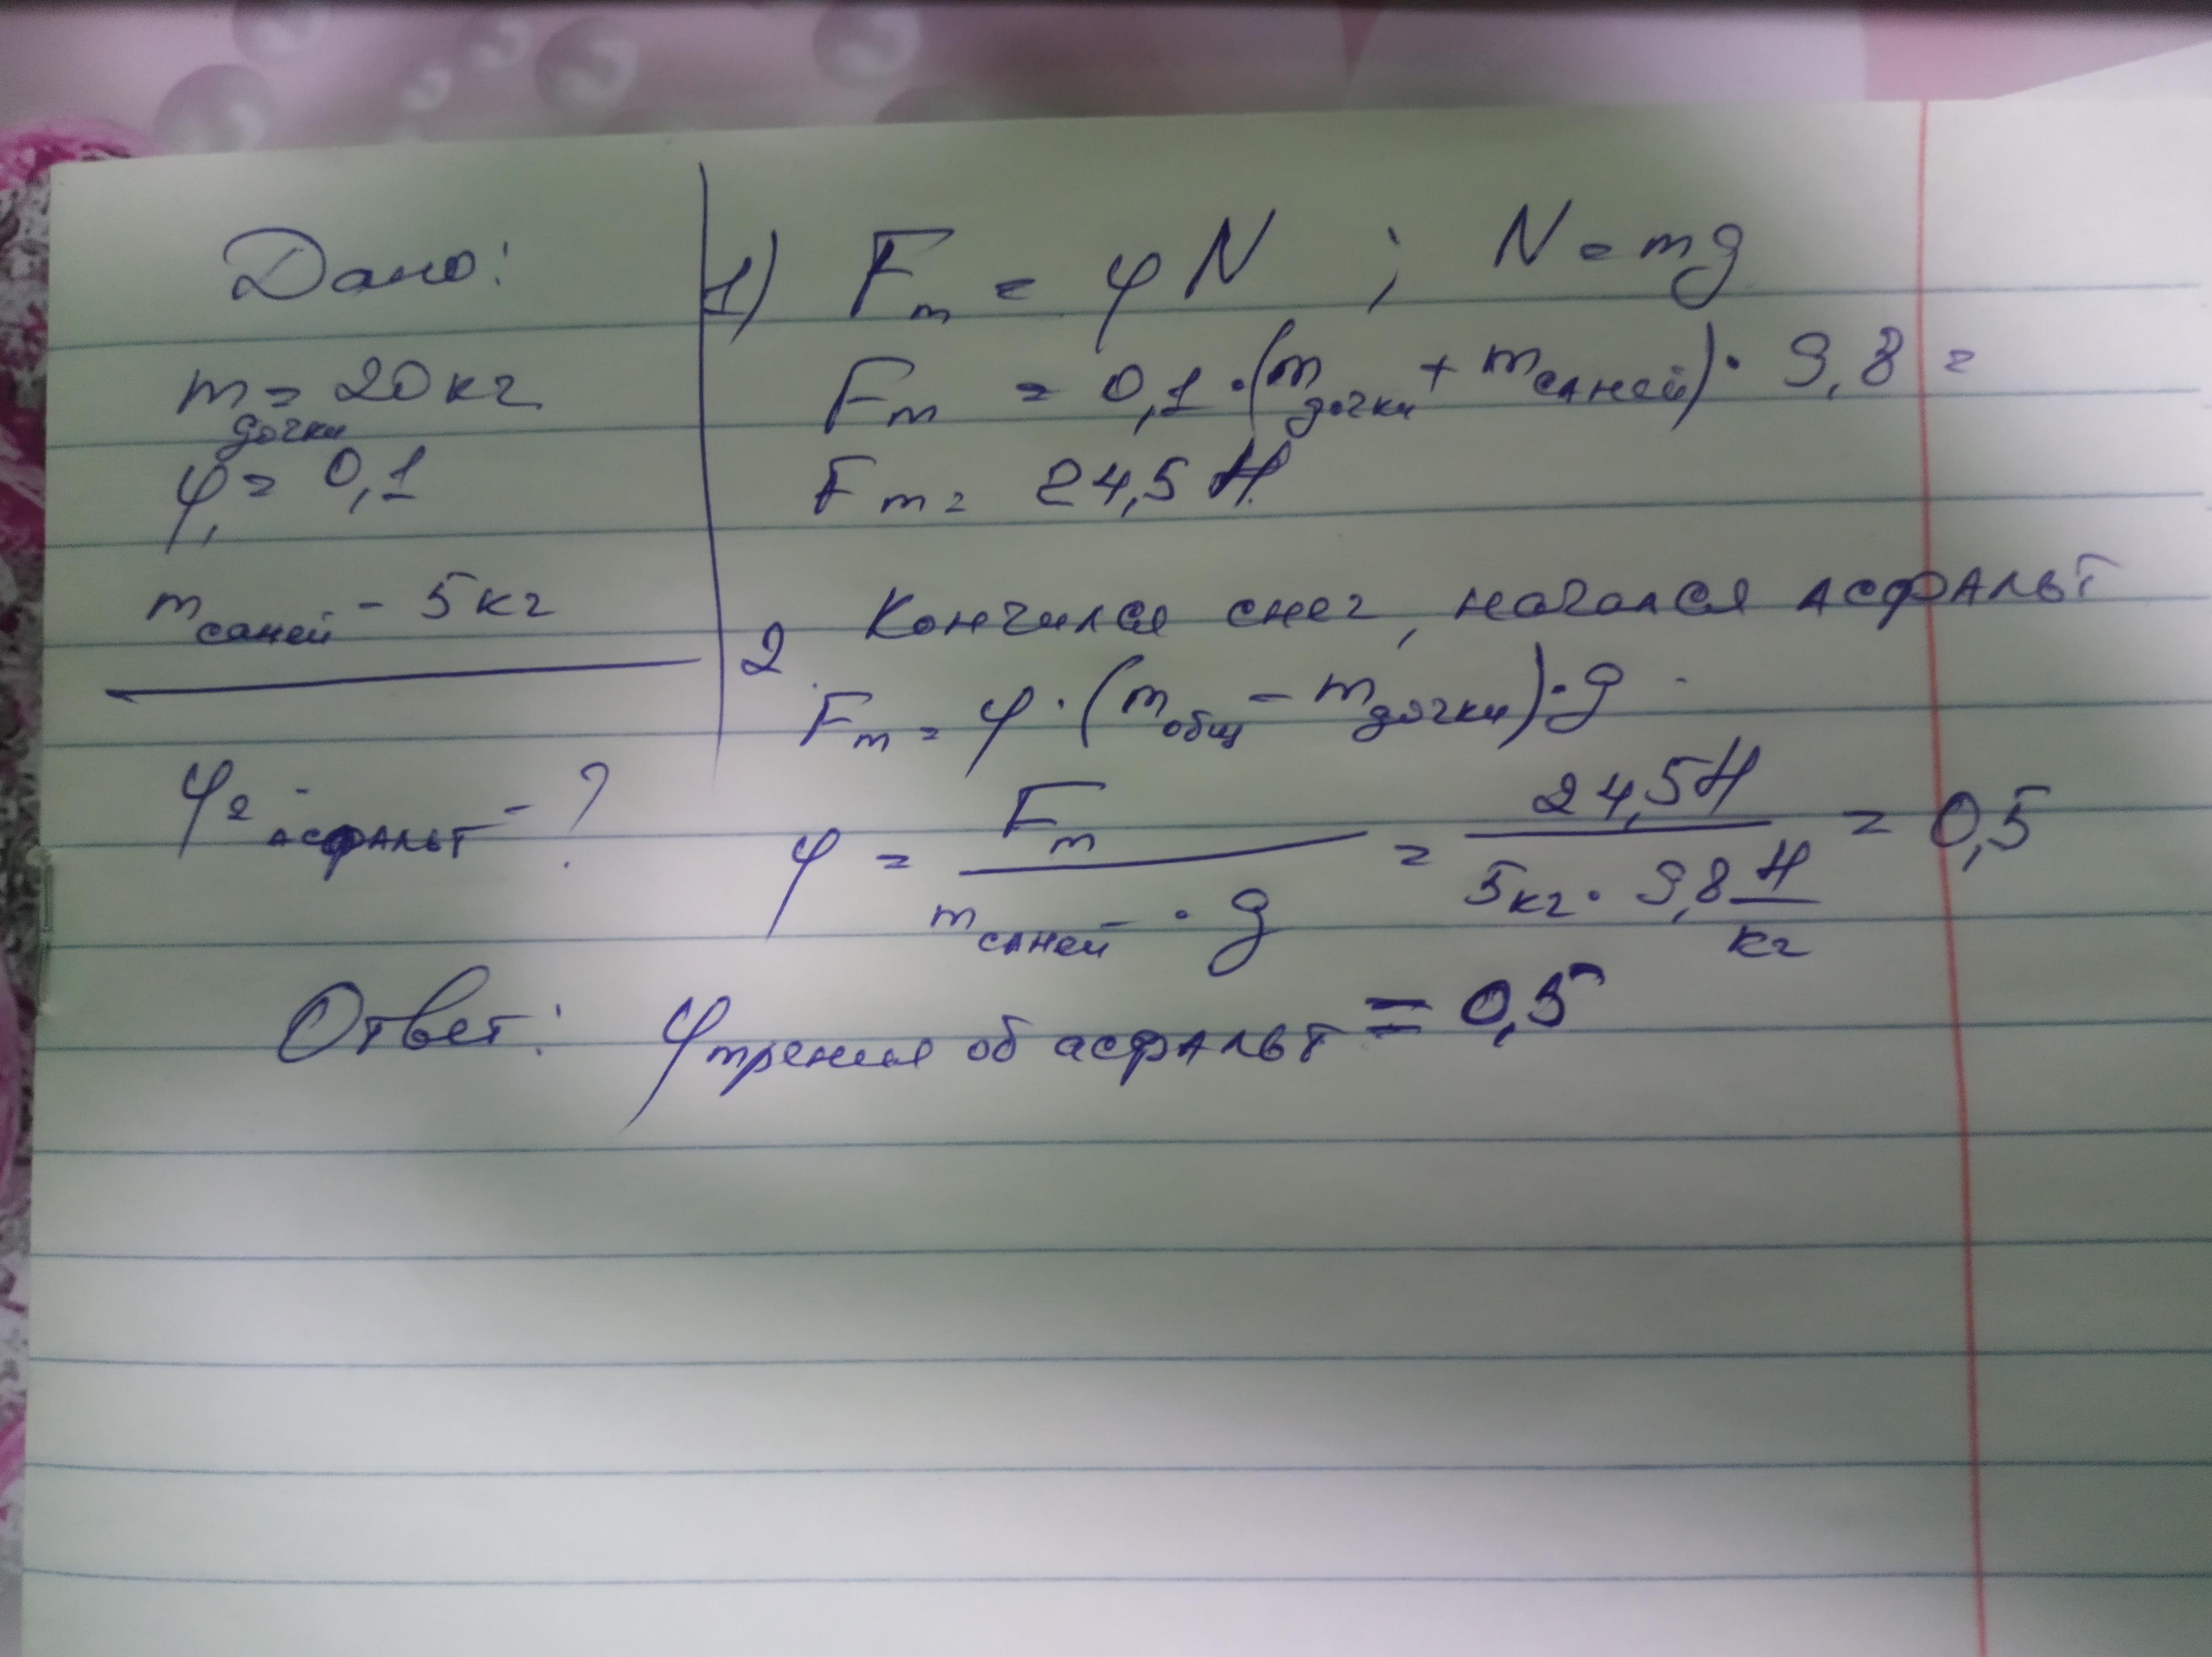 Дано:
m дочки = 20 кг
φ₁ = 0,1
m саней - 5 кг
φ₂ асфальт - ?
1) Fт = φN ; N = mg
Fт = 0,1 · (m дочки + m саней) · 9,8 =
Fт = 24,5 Н
2. Кончился снег, начался асфальт
Fт = φ · (m общ - m дочки) · g
φ = Fт / (m саней · g) = 24,5 Н / (5 кг · 9,8 Н/кг) = 0,5
Ответ: φ трения об асфальт = 0,5